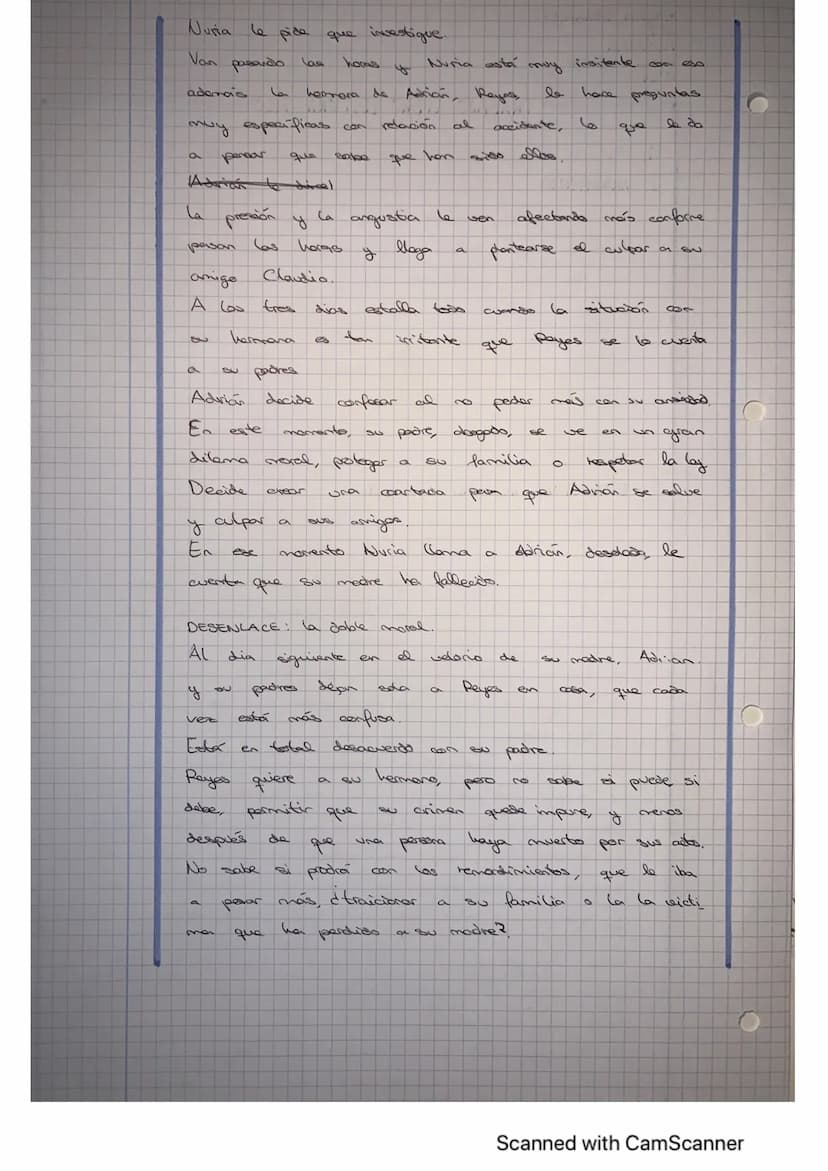 Nuria le pide que investigue.
Van pasando las horas y Nuria está muy insitente con eso
además la hermana de Adrián, Reyes, le hace preguntas
muy específicas con relación al accidente, lo que le da
a pensar que sabe que han sido ellos.
(Adrián le dice)
La presión y la angustia le ven afectando más conforme
pasan las horas y llega a plantearse el culpar a su
amigo Claudio.
A los tres dias estalla todo cuando la situación con
su hermana es tan irritante que Reyes se lo cuenta
a su padres
Adrián decide confesar al no poder más con su ansiedad.
En este momento, su padre, abogado, se ve en un gran
dilema moral, proteger a su familia o respetar la ley
Decide crear una coartada para que Adrián se salve
y culpar a sus amigos.
En ese momento Nuria llama a Adrián, desolada, le
cuenta que su madre ha fallecido.
DESENLACE: la doble moral.
Al dia siguiente en el velorio de su madre, Adrian.
y su padres dejan esta a Reyes en casa, que cada
vez está más confusa.
Está en total desacuerdo con su padre.
Reyes quiere a su hermano, pero no sabe si puede, si
debe, permitir que su crimen quede impune, y menos
después de que una persona haya muerto por sus actos.
No sabe si podrá con los remordimientos, que le iba
a pesar más, ¿traicionar a su familia o la la vícti
ma que ha perdido a su madre?
Scanned with CamScanner